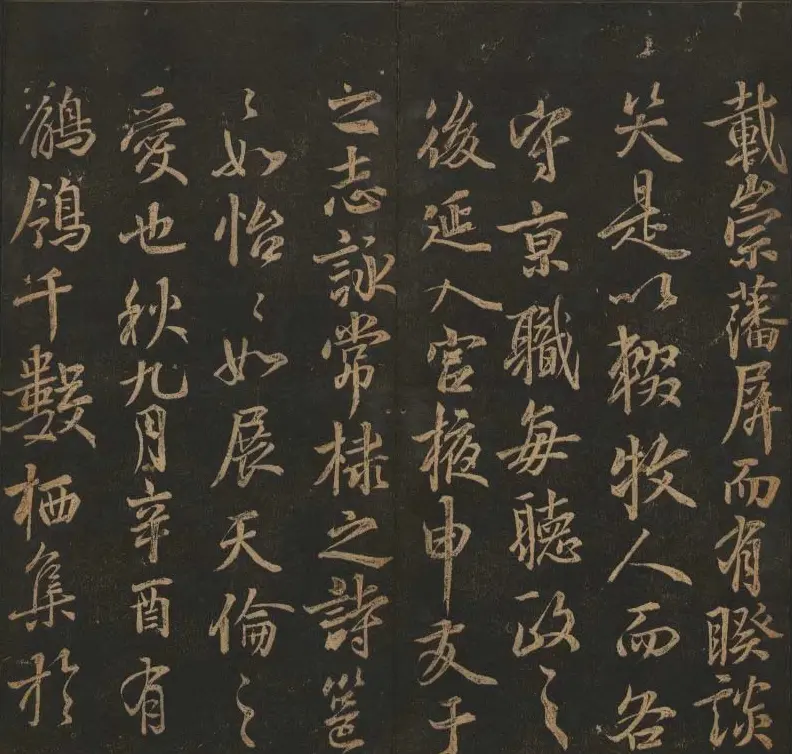 載崇藩屏而有睽談
笑是以輟牧人而各
守京職每聽政之
後延入宫掖申友于
之志詠常棣之詩邕
〻如怡〻如展天倫之
愛也秋九月辛酉有
鶺鴒千數栖集於